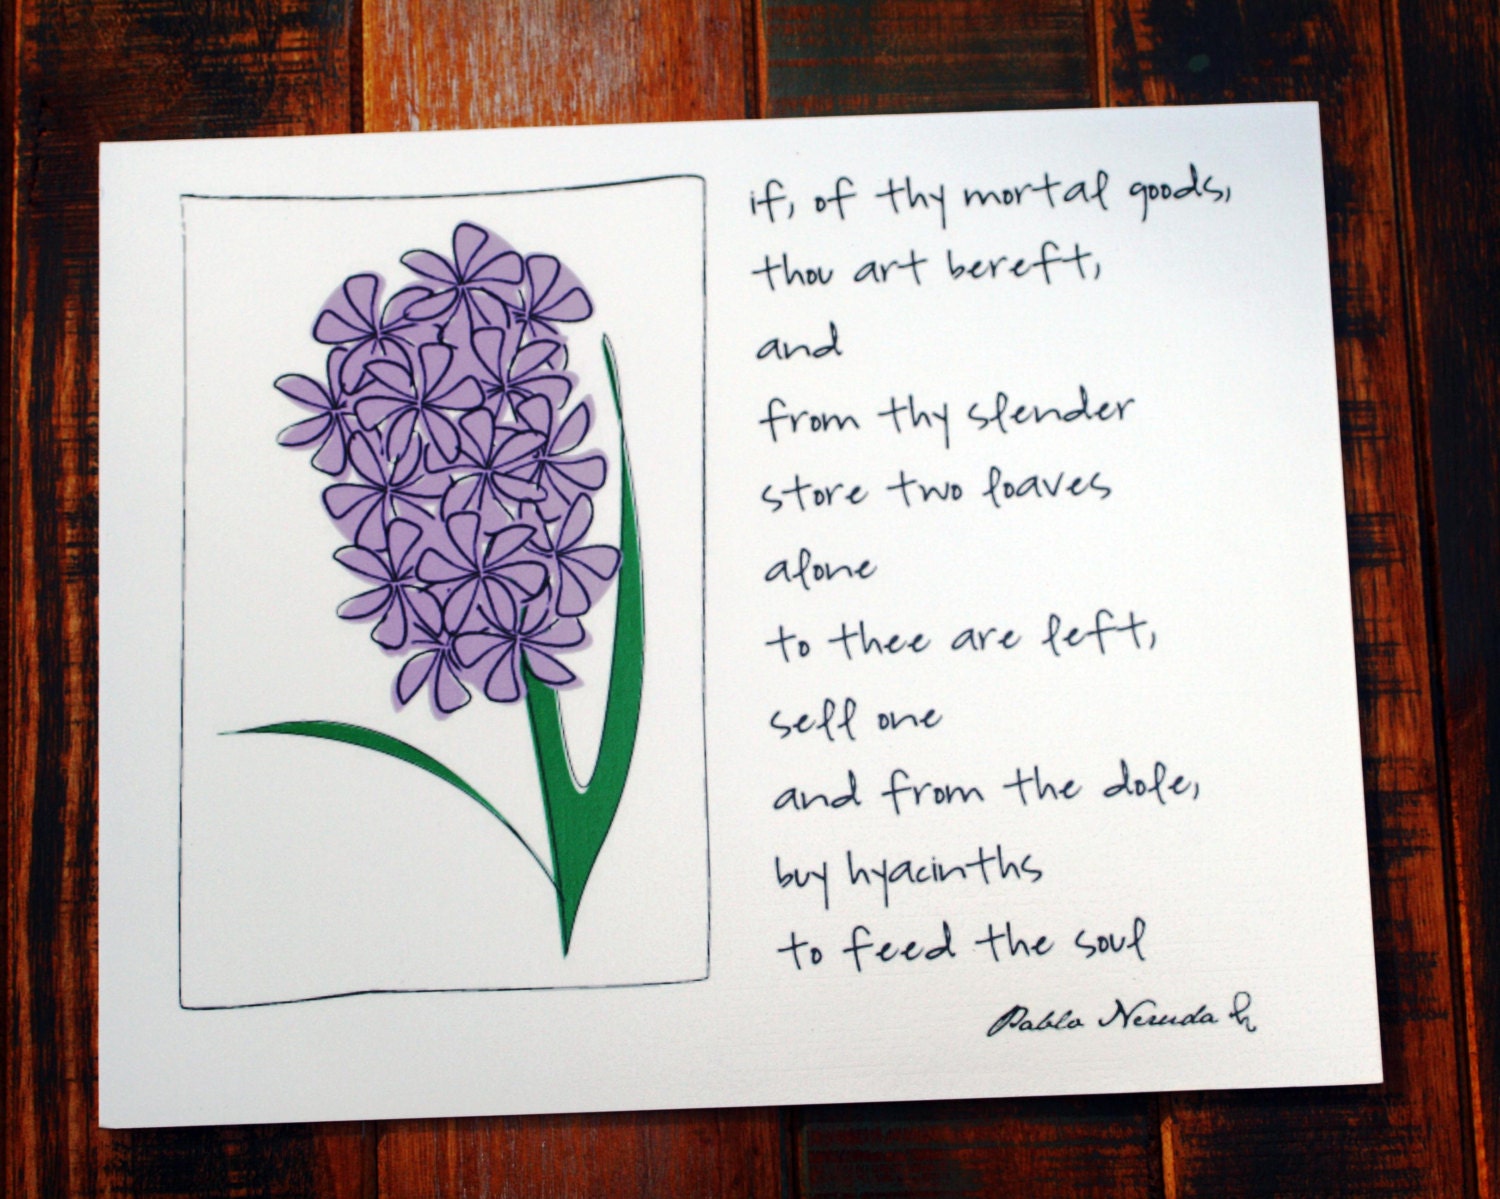 if, of thy mortal goods,
thou art bereft,
and
from thy slender
store two loaves
alone
to thee are left,
sell one
and from the dole,
buy hyacinths
to feed the soul
Pablo Neruda